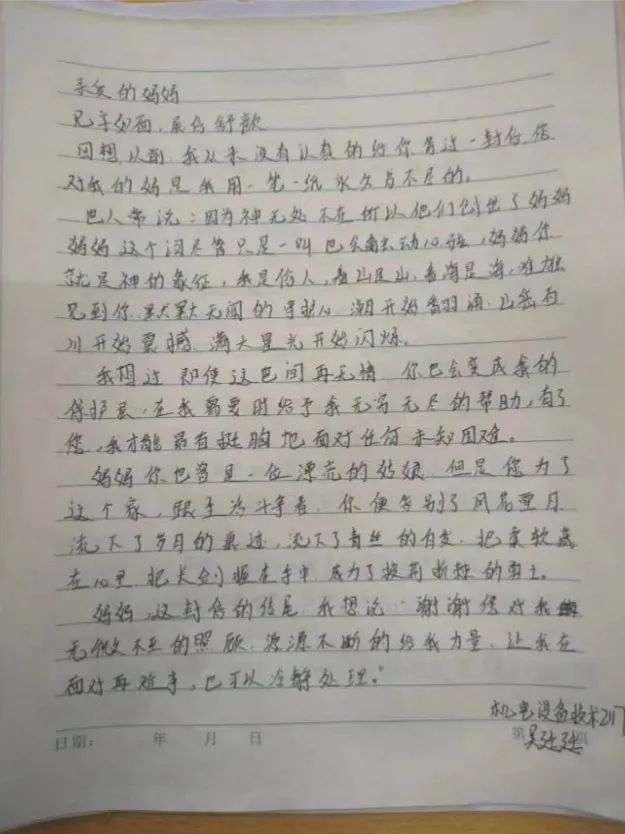 亲爱的妈妈
见字如面，展信舒颜
回想以前，我从来没有认真的给你写过一封信，您
对我的妈是我用一笔一纸永久写不尽的。
世人常说：因为神无处不在所以他们创出了妈妈
妈妈这个词尽管只是一叫也头触动心弦，妈妈你
就是神的象征，我是伤人，看山是山，看海是海，唯独
见到你默默无闻的守护，潮开始翻涌，山峦百
川开始震撼，满天星光开始闪烁。
我想过即使这世间再无情，你也会变成我的
保护层，在我需要时给予我无穷无尽的帮助，有了
您，我才能昂首挺胸地面对任何未知困难。
妈妈你也曾是一位漂亮的姑娘，但是您为了
这个家，跟生为斗争者，你便告别了风花雪月
流下了岁月的痕迹，流下了青丝的白发，把柔软藏
在心里，把长剑握在手中，成为了披荆斩棘的勇士。
妈妈，这封信的结尾，我想说“谢谢您对我
无微不至的照顾，源源不断的给我力量，让我在
面对再难事，也可以冷静处理。”
机电设备技术2117
日期： 年 月 日 第 页